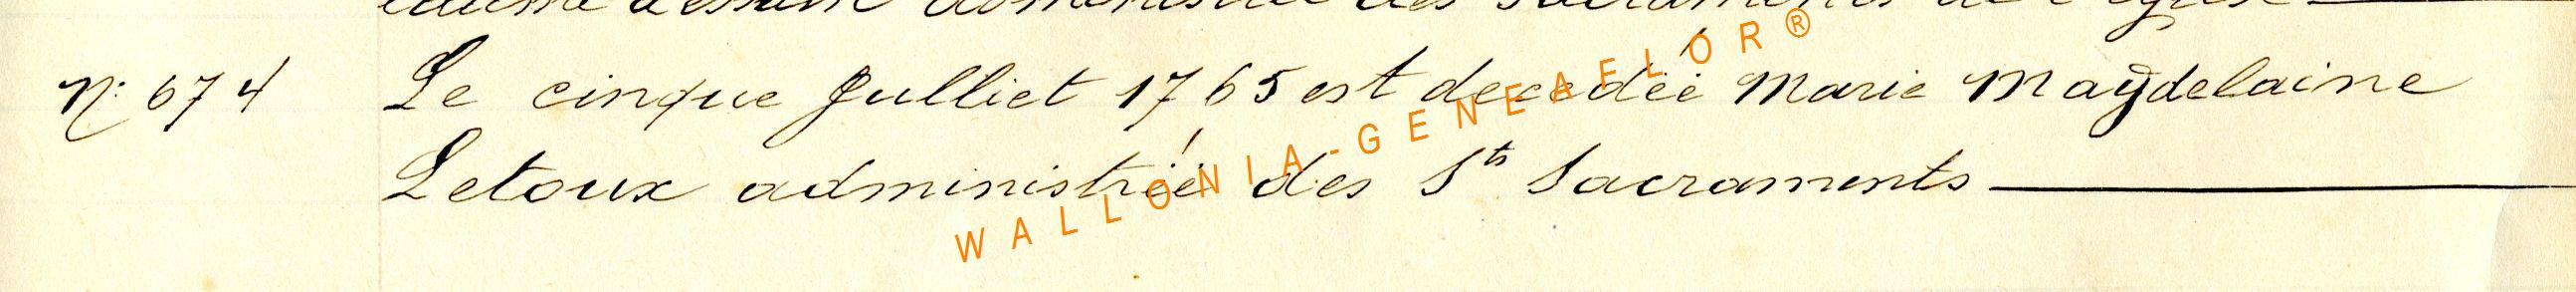 administrée des Sacraments de l'église
N: 674 Le cinque Julliet 1765 est decedée Marie Maÿdelaine
Letoux administrée des Sts Sacraments
WALLONIA-GENEAFLOR®